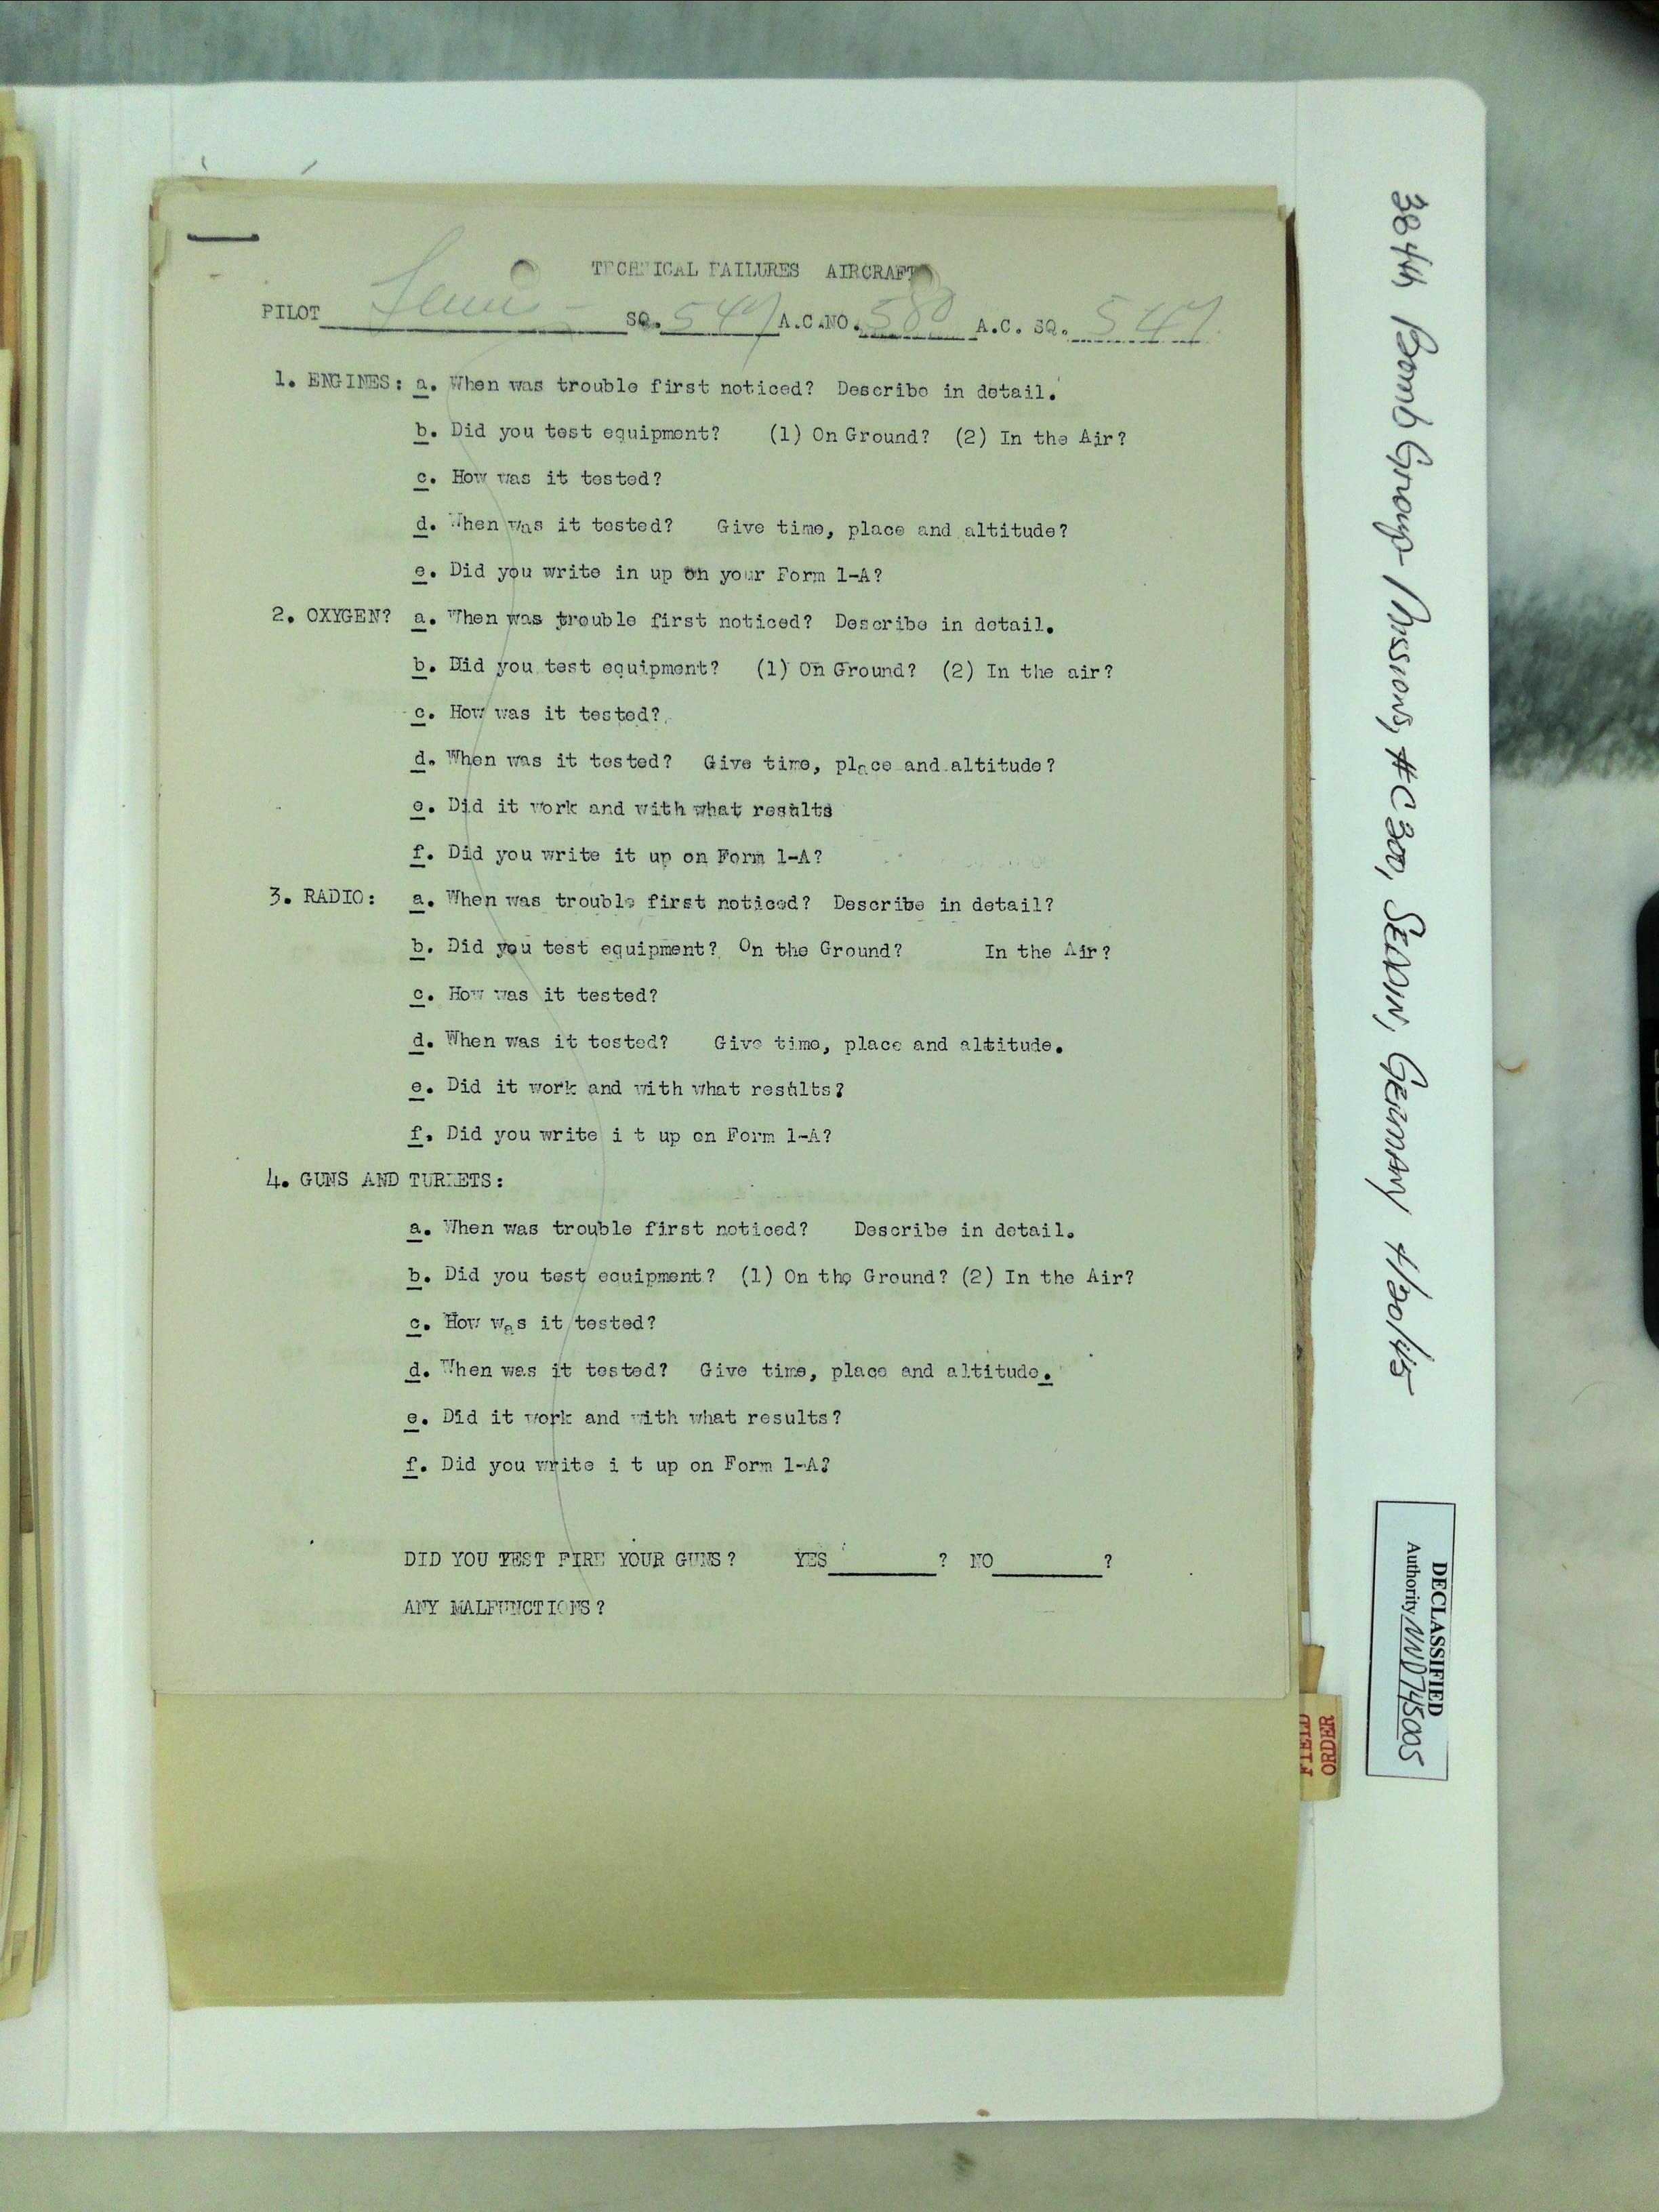 TECHNICAL FAILURES AIRCRAFT
PILOT Lewis SQ. 547 A.C.NO. 580 A.C. SQ. 547
1. ENGINES: a. When was trouble first noticed? Describe in detail.
b. Did you test equipment? (1) On Ground? (2) In the Air?
c. How was it tested?
d. When was it tested? Give time, place and altitude?
e. Did you write in up on your Form 1-A?
2. OXYGEN? a. When was trouble first noticed? Describe in detail.
b. Did you test equipment? (1) On Ground? (2) In the air?
c. How was it tested?
d. When was it tested? Give time, place and altitude?
e. Did it work and with what results
f. Did you write it up on Form 1-A?
3. RADIO: a. When was trouble first noticed? Describe in detail?
b. Did you test equipment? On the Ground? In the Air?
c. How was it tested?
d. When was it tested? Give time, place and altitude.
e. Did it work and with what results?
f. Did you write i t up on Form 1-A?
4. GUNS AND TURRETS:
a. When was trouble first noticed? Describe in detail.
b. Did you test equipment? (1) On the Ground? (2) In the Air?
c. How was it tested?
d. When was it tested? Give time, place and altitude.
e. Did it work and with what results?
f. Did you write i t up on Form 1-A?
DID YOU TEST FIRE YOUR GUNS? YES ? NO ?
ANY MALFUNCTIONS?
FIELD
ORDER
384th Bomb Group - Missions, #C300, Seddin, Germany 4/20/45
DECLASSIFIED
Authority NND745005